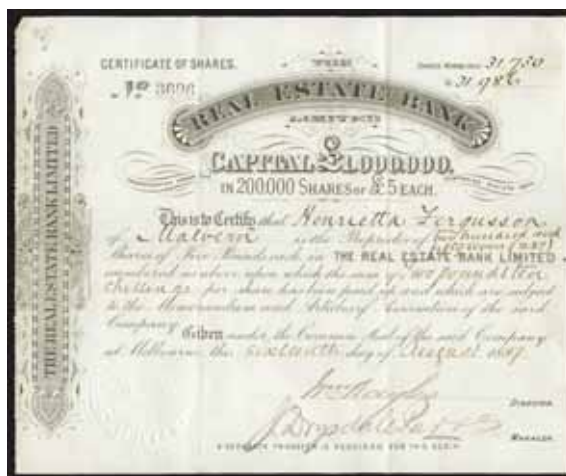 CERTIFICATE OF SHARES.
THE
31.730
No 3696
to 31.986
REAL ESTATE BANK
LIMITED
CAPITAL £1,000,000.
IN 200,000 SHARES OF £5 EACH.
This is to Certify that Henrietta Fergusson
of Malvern is the Proprietor of
Shares of Five Pounds each in THE REAL ESTATE BANK LIMITED
numbered as above upon which the sum of two pounds ten
shillings per share has been paid up and which are subject
to the Memorandum and Articles of Association of the said
Company. Given under the Common Seal of the said Company
at Melbourne the sixteenth day of August
DIRECTOR.
MANAGER.
A SEPARATE TRANSFER IS REQUIRED FOR THIS SCRIP.
THE REAL ESTATE BANK LIMITED